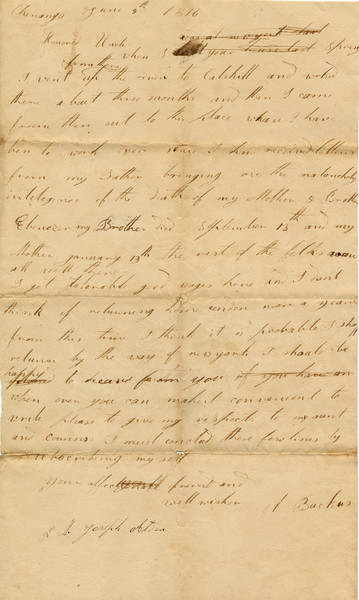 Chenango June 9th 1816
Honored Uncle
when I your house last Spring
from there
I went up the river to Catskill and worked
there about three months and then I came
from there out to the place where I have
ben to work ever since I have received letters
from my Father bringing me the malancholy
inteligence of the Death of my Mother & Brother
Ebenezer my Brother Died September 13th and my
Mother january 19th the rest of the folks were
all well there
I get tolerable good wages here and I dont
think of returning home under near a year
from this time I think it is probable I shall
return by the way of newyork I should be
happy to hear from you if you have an
when ever you can make it convenient to
write please to give my respects to my aunt
and Cousins I must conclud these few lines by
subscribing my self
your friend and
well wisher Backus
Joseph